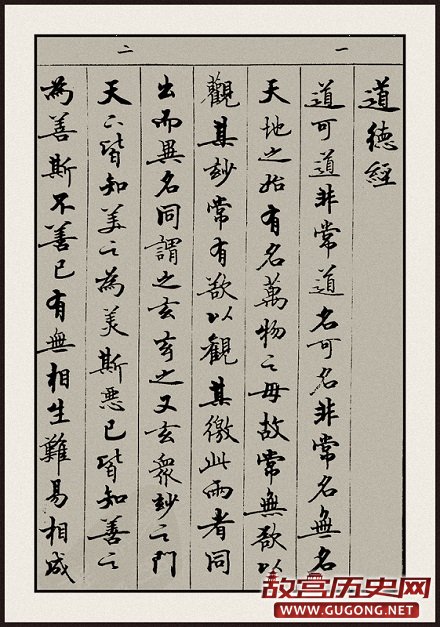 一
二
道德經
道可道非常道名可名非常名無名
天地之始有名萬物之母故常無欲以
觀其妙常有欲以觀其徼此兩者同
出而異名同謂之玄玄之又玄衆妙之門
天下皆知美之為美斯惡已皆知善之
為善斯不善已有無相生難易相成
故宫历史网
WWW.GUGONG.NET